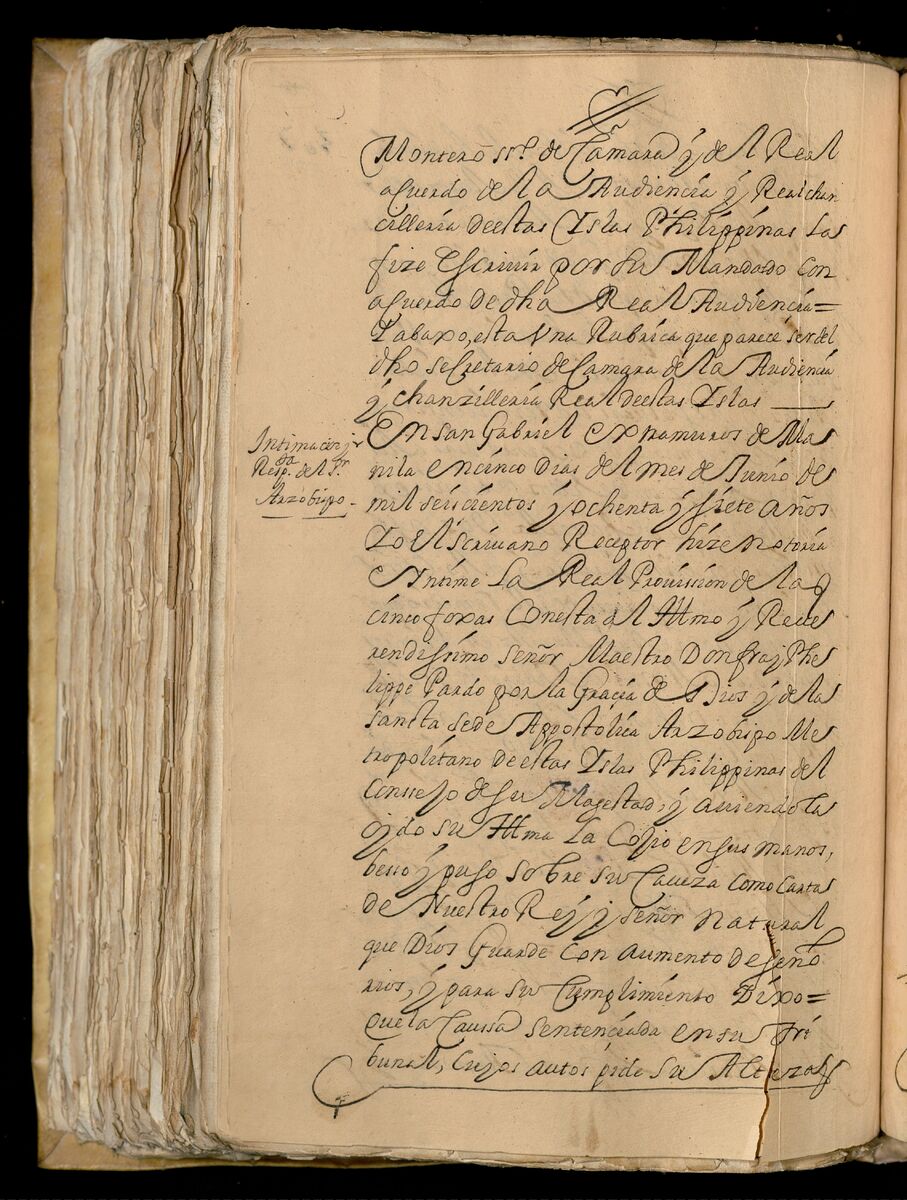 Montero srº. de Camara y del Real
acuerdo de la Audiencia y Real chan
cilleria de estas Islas Philippinas las
fize escriuir por su Mandado Con
acuerdo de dha Real Audiencia=
Y abaxo, esta Vna Rubrica que parece ser del
dho secretario de Camara de la Audiencia
y chanzilleria Real de estas Islas
Intimacion y r
Respta. del Sr.
Arzobispo.
En San Gabriel extramuros de Ma
nila en cinco Dias del mes de Junio de
mil seiscientos y ochenta y siete años
Yo el scriuano Receptor hize notoria
e Intime La Real Prouission de las
cinco foxas Con esta al Illmo y Reue
rendissimo señor Maestro Don fray Phe
lippe Pardo por la Gracia de Dios y de la
sancta sede Appostolica Arzobispo Me
tropolitano de estas Islas Philippinas del
Consejo de su Magestad, y auiendola
oydo su Illma La Cojio en sus manos,
besso y puso sobre su Caueza como Carta
de Nuestro Rey y señor natural
que Dios Guarde con aumento de seño
rios, y para su Cumplimiento Dixo=
que la Caussa sentenciada en su tri
bunal, Cujos autos pide su Alteza